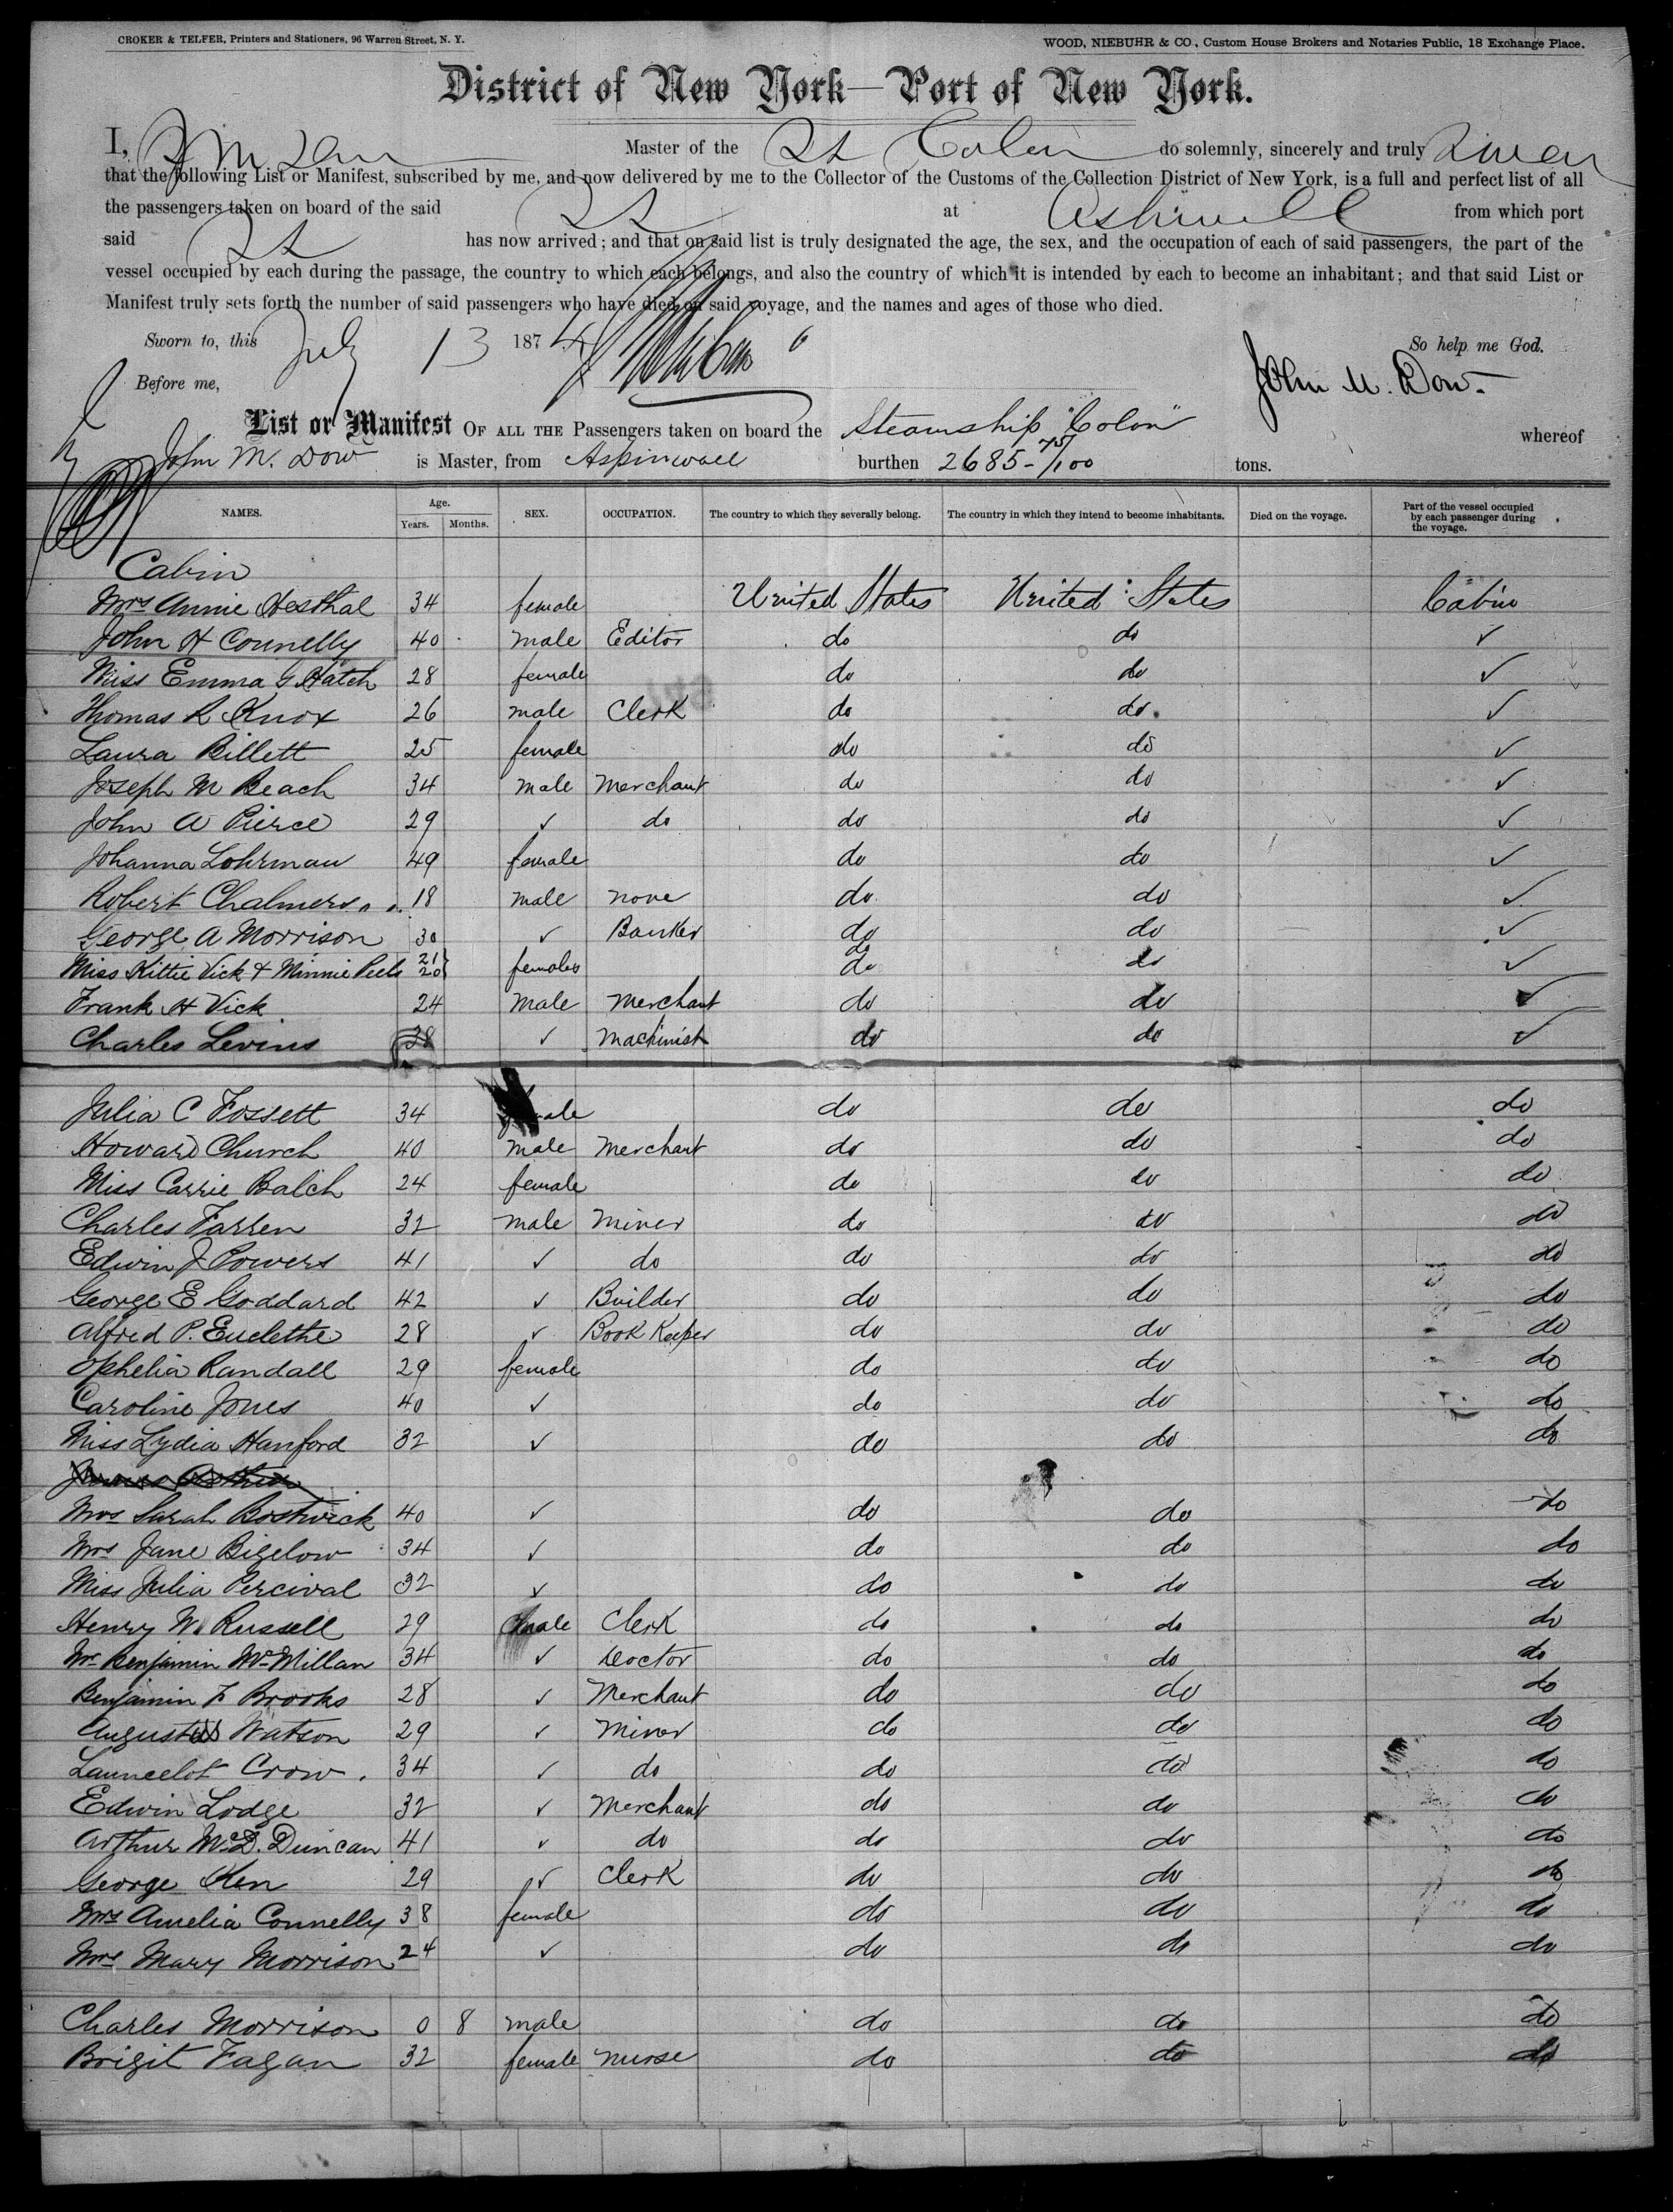 CROKER & TELFER, Printers and Stationers, 96 Warren Street, N. Y. WOOD, NIEBUHR & CO., Custom House Brokers and Notaries Public, 18 Exchange Place.
District of New York—Port of New York.
I, Master of the Colon do solemnly, sincerely and truly swear
that the following List or Manifest, subscribed by me, and now delivered by me to the Collector of the Customs of the Collection District of New York, is a full and perfect list of all
the passengers taken on board of the said at from which port
said has now arrived; and that on said list is truly designated the age, the sex, and the occupation of each of said passengers, the part of the
vessel occupied by each during the passage, the country to which each belongs, and also the country of which it is intended by each to become an inhabitant; and that said List or
Manifest truly sets forth the number of said passengers who have died on said voyage, and the names and ages of those who died.
Sworn to, this July 13 1874 So help me God.
Before me, John M. Dow.
List or Manifest OF ALL THE Passengers taken on board the Steamship "Colon" whereof
John M. Dow is Master, from Aspinwall burthen 2685-75/100 tons.
NAMES. Age. Years. Months. SEX. OCCUPATION. The country to which they severally belong. The country in which they intend to become inhabitants. Died on the voyage. Part of the vessel occupied by each passenger during the voyage.
Cabin
Mrs Annie Hesthal 34 female United States United States Cabin
John H Connelly 40 male Editor do do ✓
Miss Emma G Hatch 28 female do do ✓
Thomas R Knox 26 male Clerk do do ✓
Laura Billett 25 female do do ✓
Joseph M Beach 34 male Merchant do do ✓
John A Pierce 29 ✓ do do do ✓
Johanna Lohrman 49 female do do ✓
Robert Chalmers 18 male none do do ✓
George A Morrison 30 ✓ Banker do do ✓
Miss Kittie Vick & Minnie Peels 21 20 females do do do ✓
Frank H Vick 24 male Merchant do do ✓
Charles Levins 28 ✓ Machinist do do ✓
Julia C Fossett 34 female do do do
Howard Church 40 male Merchant do do do
Miss Carrie Balch 24 female do do do
Charles Farren 32 male Miner do do do
Edwin J Powers 41 ✓ do do do do
George E Goddard 42 ✓ Builder do do do
Alfred P. 28 ✓ Book Keeper do do do
Ophelia Randall 29 female do do do
Caroline Jones 40 ✓ do do do
Miss Lydia Hanford 32 ✓ do do do
Mrs Sarah Bostwick 40 ✓ do do do
Mrs Jane Bigelow 34 ✓ do do do
Miss Julia Percival 32 ✓ do do do
Henry W. Russell 29 male Clerk do do do
Mr Benjamin McMillan 34 ✓ Doctor do do do
Benjamin F Brooks 28 ✓ Merchant do do do
Augustus Watson 29 ✓ Miner do do do
Launcelot Crow 34 ✓ do do do do
Edwin Lodge 32 ✓ Merchant do do do
Arthur McD. Duncan 41 ✓ do do do do
George Olen 29 ✓ Clerk do do do
Mrs Amelia Connelly 38 female do do do
Mrs Mary Morrison 24 ✓ do do do
Charles Morrison 0 8 male do do do
Brigit Fagan 32 female nurse do do do